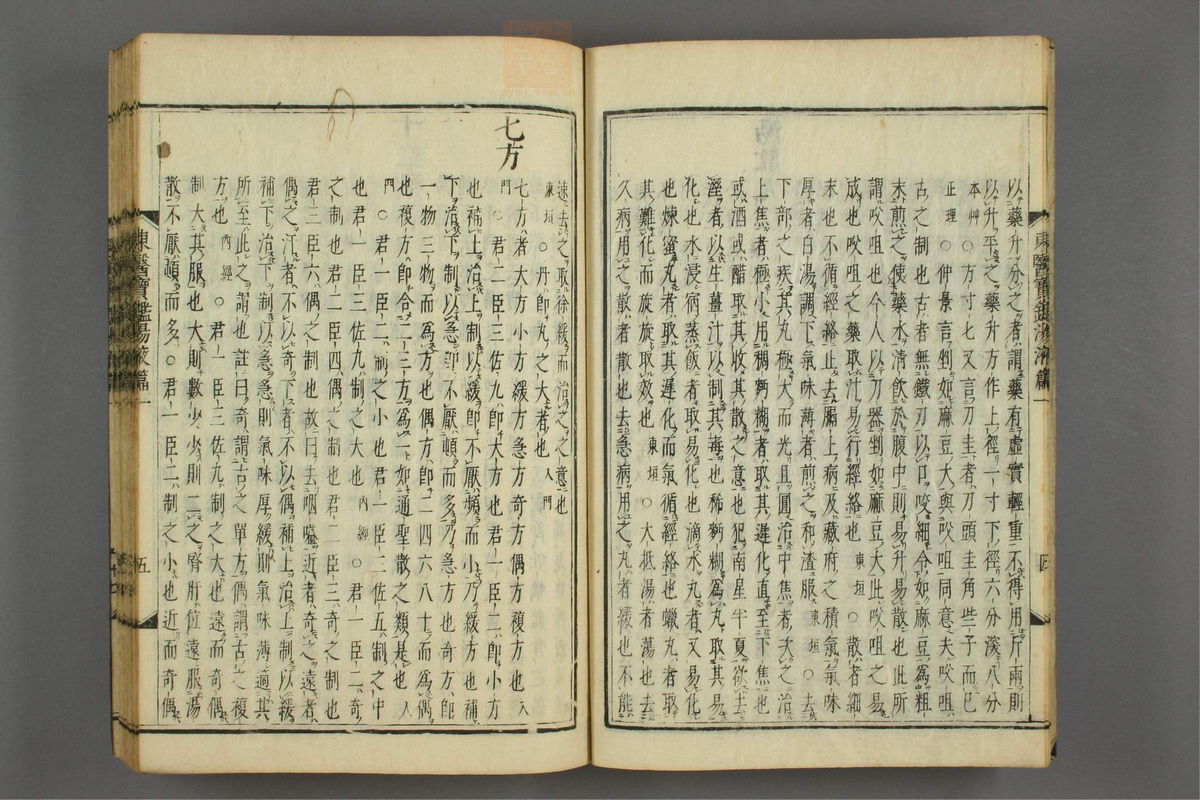 以藥升分之者謂藥有虛實輕重不得用斤兩則
以升平之藥升方作上徑一寸下徑六分深八分
本艸○方寸七又言刀圭者刀頭圭角些子而已
正理○仲景言剉如麻豆大與㕮咀同意夫㕮咀
古之制也古者無鐵刃以口咬細令如麻豆爲粗
末煎之使藥水清飲於腹中則易升易散也此所
謂㕮咀也今人以刀器剉如麻豆大此㕮咀之易
成也㕮咀之藥取汁易行經絡也東垣○散者細
末也不循經絡止去膈上病及藏府之積氣氣味
厚者白湯調下氣味薄者煎之和渣服東垣○去
下部之疾其丸極大而光且圓治中焦者次之治
上焦者極小用稠麪糊者取其遲化直至下焦也
或酒或醋取其收其散之意也犯南星半夏欲去
濕者以生薑汁以制其毒也稀麪糊爲丸取其易
化也水浸宿蒸飯者取易化也滴水丸者又易化
也煉蜜丸者取其遲化而氣循經絡也蠟丸者取
其難化而旋旋取效也東垣○大抵湯者蕩也去
久病用之散者散也去急病用之丸者緩也不能
東醫寶鑑湯液篇一
速去之取徐緩而治之之意也
東垣○丹即丸之大者也入門
七方
七方者大方小方緩方急方奇方偶方複方也入
門○君一臣三佐九即大方也君一臣二即小方
也補上治上制以緩即不厭頻而小乃緩方也補
下治下制以急即不厭頓而多乃急方也奇方即
一物三物而爲方也偶方即二四六八十而爲偶
也複方即合二三方爲一如通聖散之類是也入
門○君一臣二制之小也君一臣三佐五制之中
也君一臣三佐九制之大也內經○君一臣二奇
之制也君二臣四偶之制也君二臣三奇之制也
君二臣六偶之制也故曰去咽嗌近者奇之遠者
偶之汗者不以奇下者不以偶補上治上制以緩
補下治下制以急急則氣味厚緩則氣味薄適其
所至此之謂也註曰奇謂古之單方偶謂古之複
方也內經○君一臣三佐九制之大也遠而奇偶
制大其服也大則數少少則二之腎肝位遠服湯
散不厭頓而多○君一臣二制之小也近而奇偶
東醫寶鑑湯液篇一
五